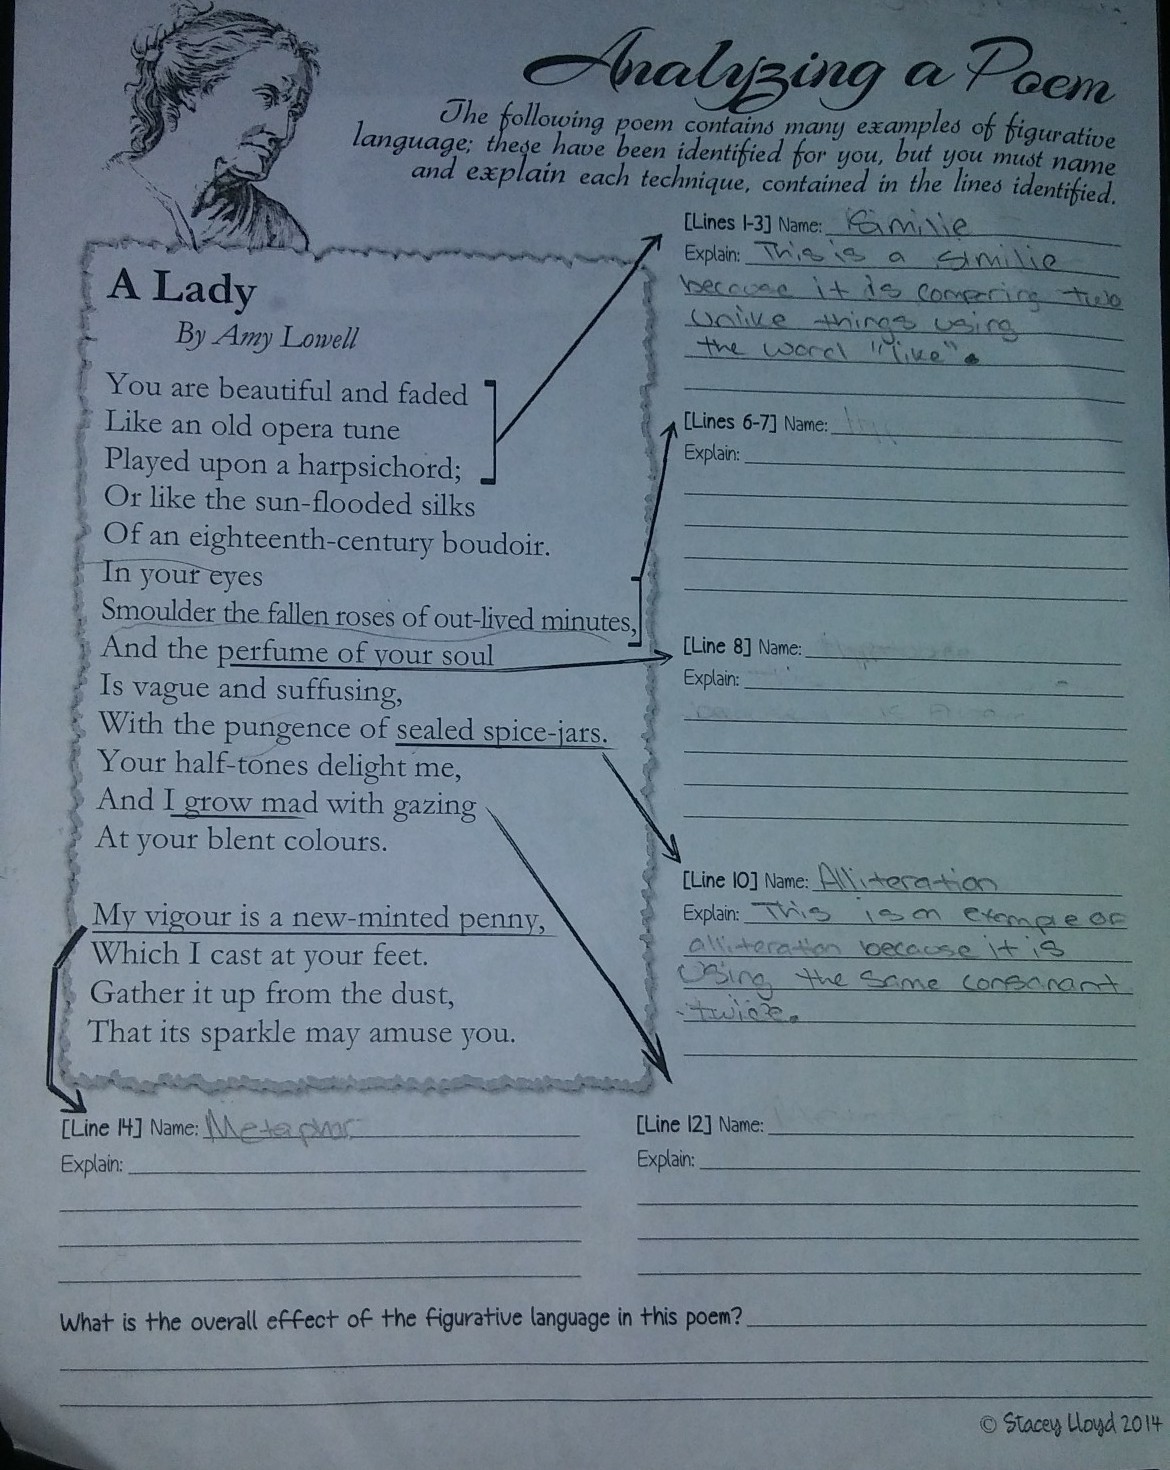 Analyzing a Poem
The following poem contains many examples of figurative
language; these have been identified for you, but you must name
and explain each technique, contained in the lines identified.
A Lady
By Amy Lowell
You are beautiful and faded
Like an old opera tune
Played upon a harpsichord;
Or like the sun-flooded silks
Of an eighteenth-century boudoir.
In your eyes
Smoulder the fallen roses of out-lived minutes,
And the perfume of your soul
Is vague and suffusing,
With the pungence of sealed spice-jars.
Your half-tones delight me,
And I grow mad with gazing
At your blent colours.
My vigour is a new-minted penny,
Which I cast at your feet.
Gather it up from the dust,
That its sparkle may amuse you.
[Lines 1-3] Name: Similie
Explain: This is a similie
because it is comparing two
unlike things using
the word "like".
[Lines 6-7] Name:
Explain:
[Line 8] Name:
Explain:
[Line 10] Name: Alliteration
Explain: This is an exampe of
alliteration because it is
using the same consanant
twice.
[Line 14] Name: Metaphor
Explain:
[Line 12] Name:
Explain:
What is the overall effect of the figurative language in this poem?
© Stacey Lloyd 2014